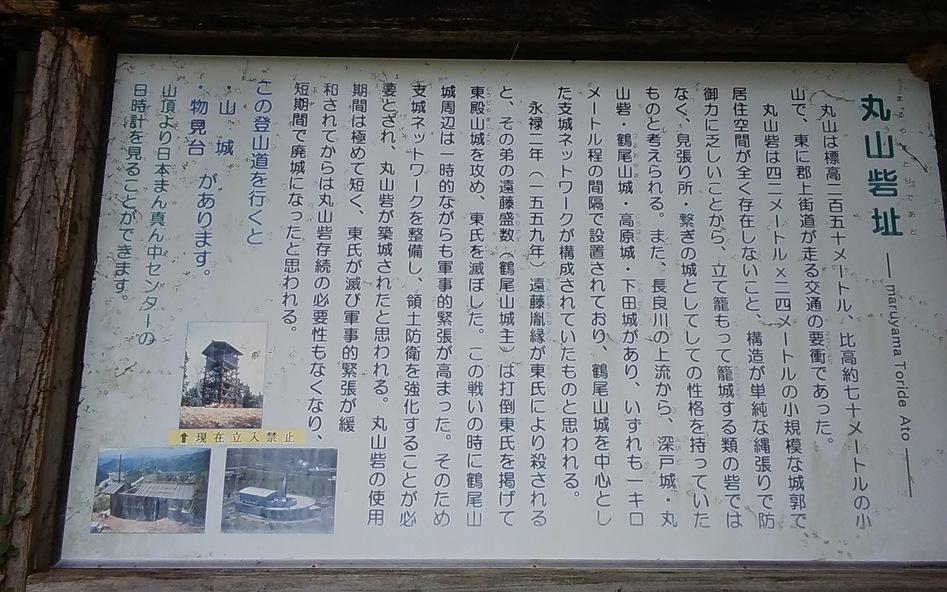 丸山砦址
まるやまとりであと
maruyama Toride Ato
丸山は標高二百五十メートル、比高約七十メートルの小
山で、東に郡上街道が走る交通の要衝であった。
丸山砦は四二メートル×二四メートルの小規模な城郭で
居住空間が全く存在しないこと、構造が単純な縄張りで防
御力に乏しいことから、立て籠もって籠城する類の砦では
なく、見張り所・繋ぎの城としてしての性格を持っていた
ものと考えられる。また、長良川の上流から、深戸城・丸
山砦・鶴尾山城・高原城・下田城があり、いずれも一キロ
メートル程の間隔で設置されており、鶴尾山城を中心とし
た支城ネットワークが構成されていたものと思われる。
永禄二年（一五五九年）遠藤胤縁が東氏により殺される
と、その弟の遠藤盛数（鶴尾山城主）は打倒東氏を掲げて
東殿山城を攻め、東氏を滅ぼした。この戦いの時に鶴尾山
城周辺は一時的ながらも軍事的緊張が高まった。そのため
支城ネットワークを整備し、領土防衛を強化することが必
要とされ、丸山砦が築城されたと思われる。丸山砦の使用
期間は極めて短く、東氏が滅び軍事的緊張が緩
和されてからは丸山砦存続の必要性もなくなり、
短期間で廃城になったと思われる。
この登山道を行くと
・山城
・物見台 があります。
山頂より日本まん真ん中センターの
日時計を見ることができます。
⬆現在立入禁止